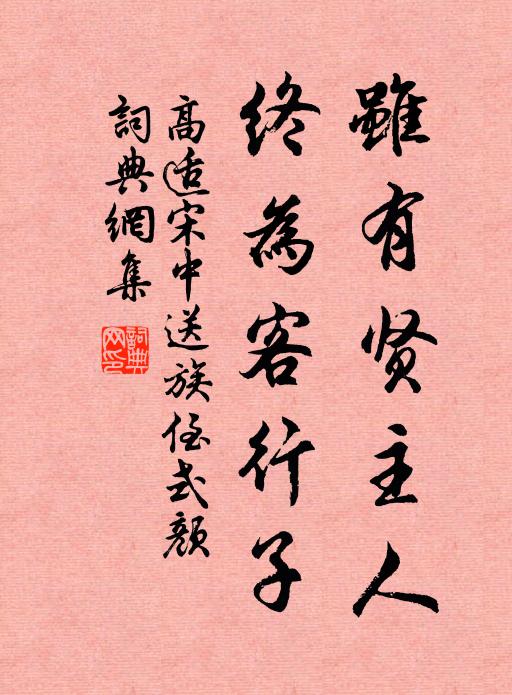 雖有贤主人
終為客行子
高适宋中送族侄式顏
詞典網集
詞典网印